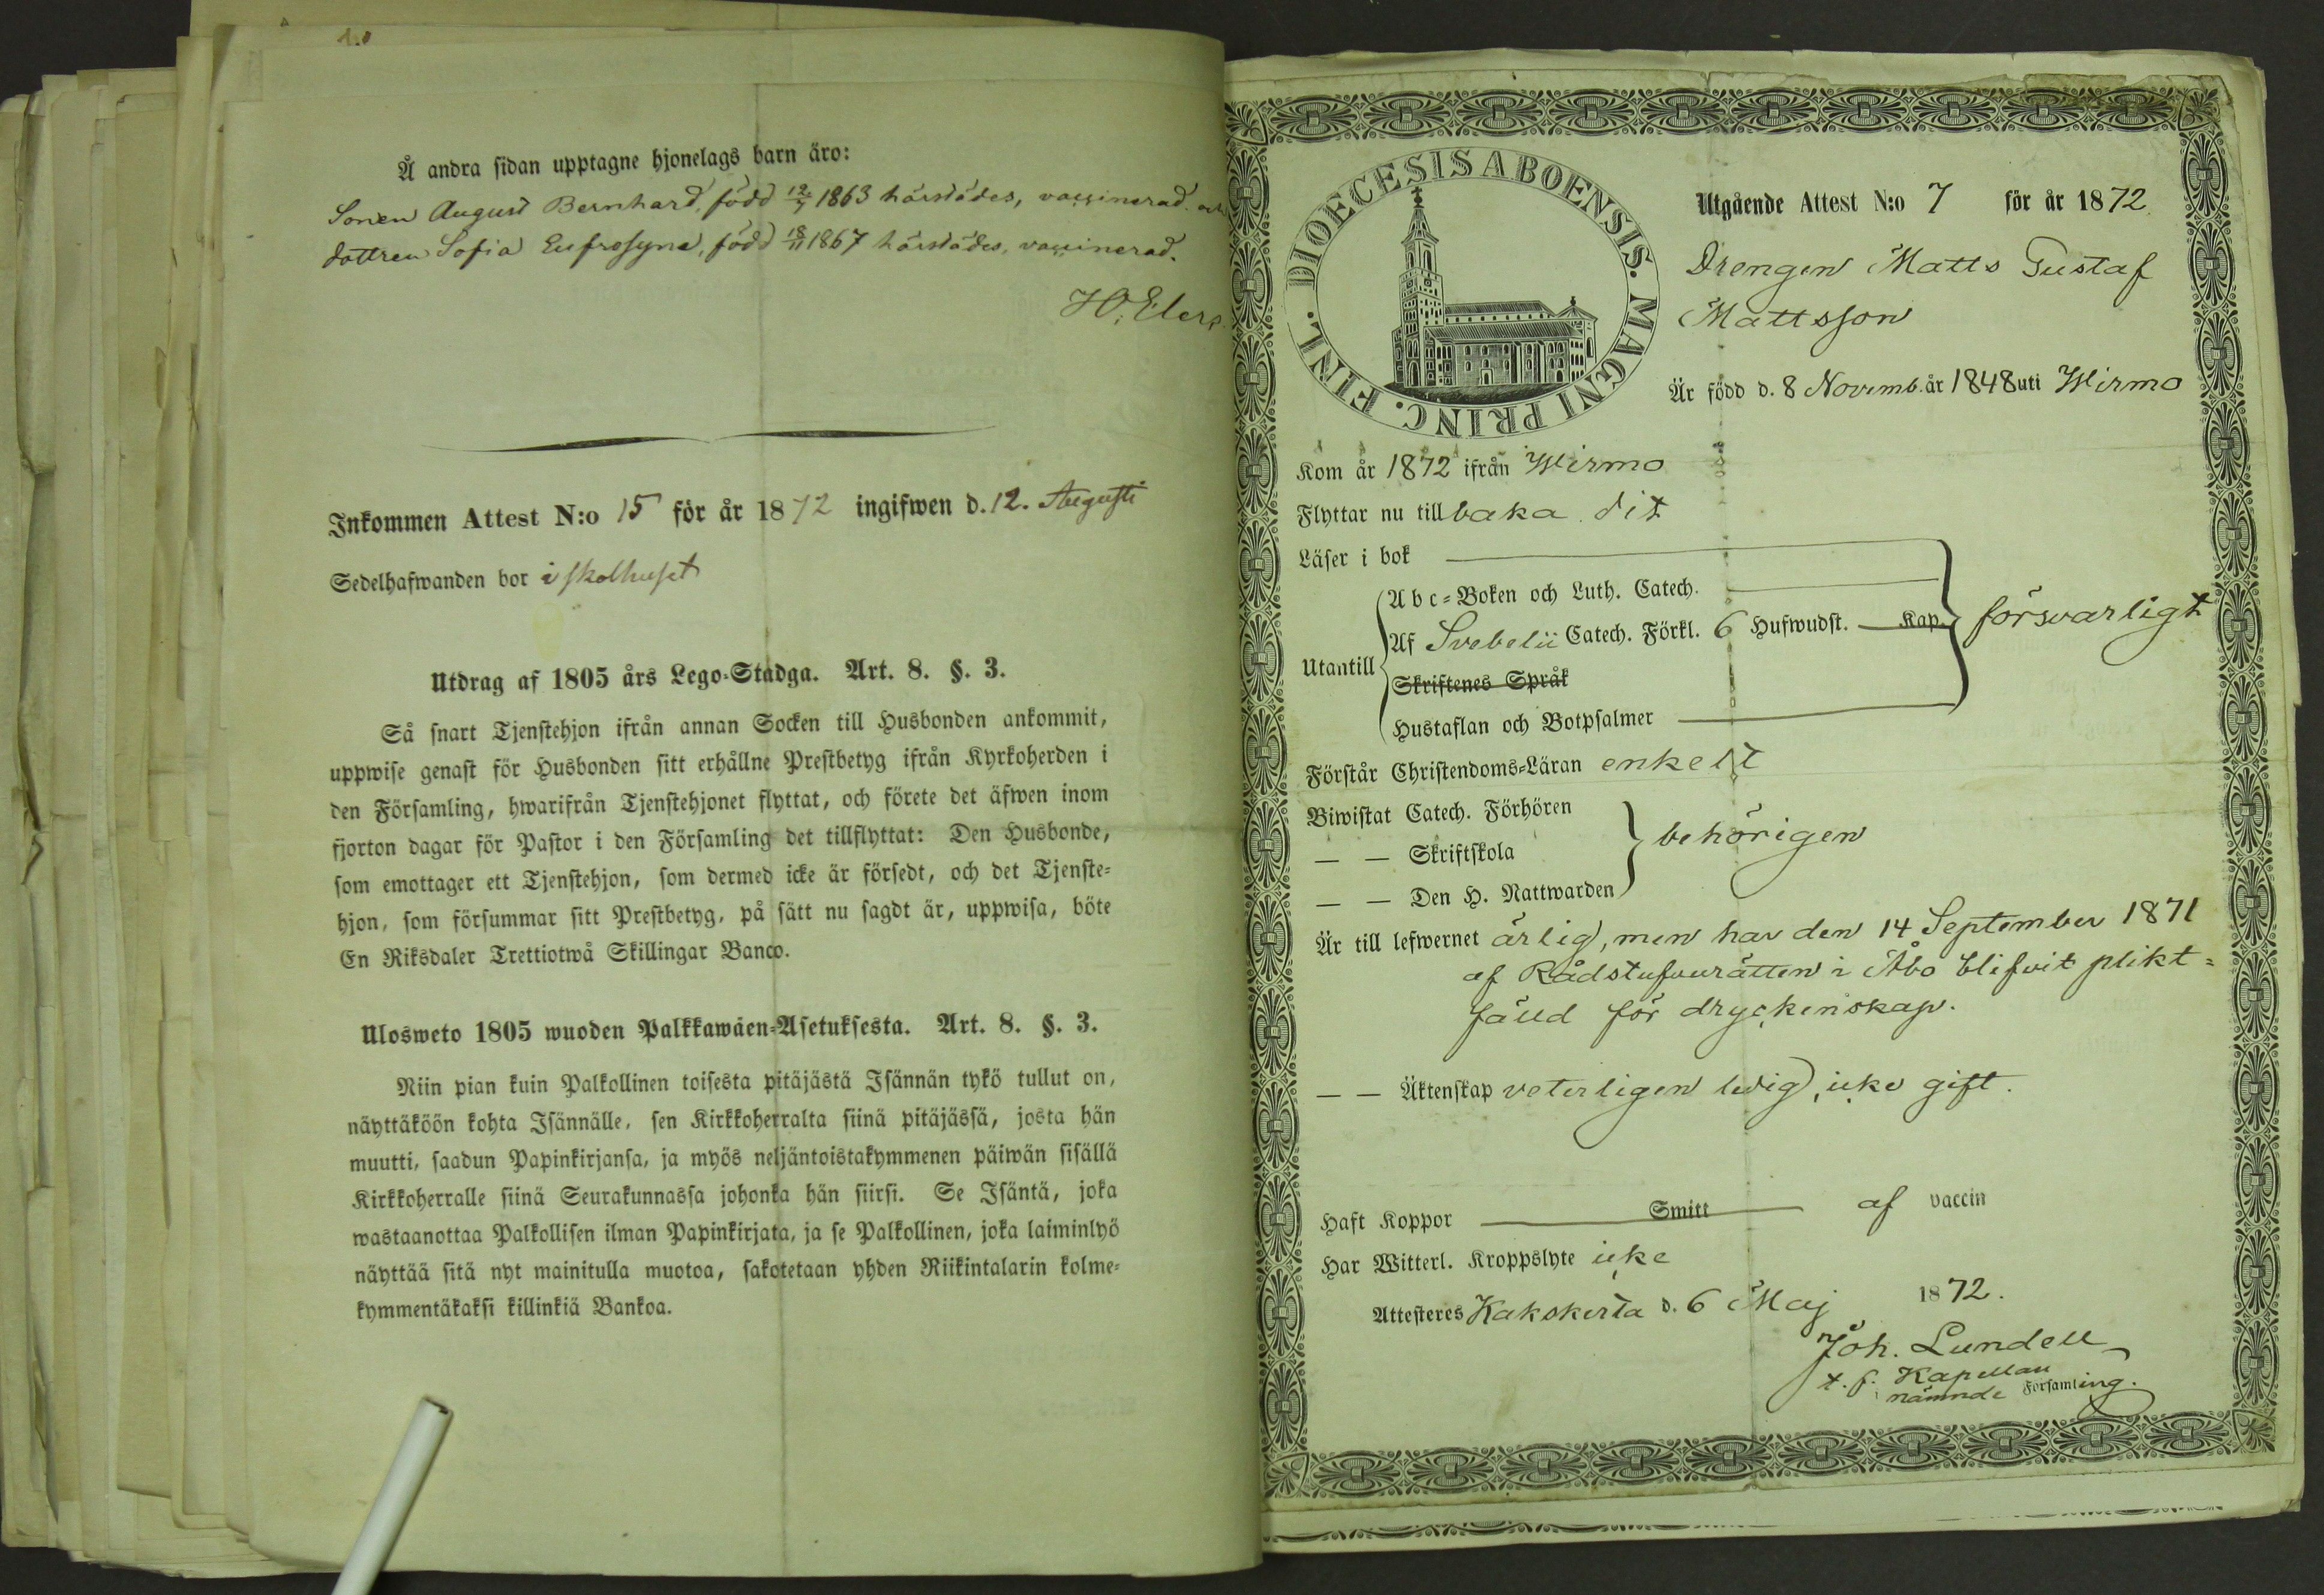 Å andra sidan upptagne hjonelags barn äro:
Sonen August Bernhard, född 12/7 1863 härstädes, vaccinerad. och
dottren Sofia Eufrosyne, född 18/11 1867 härstädes, vaccinerad.
Inkommen Attest N:o 15 för år 1872 ingifwen d. 12. Augusti
Sedelhafwanden bor i skolhuset
Utdrag af 1805 års Lego-Stadga. Art. 8. §. 3.
Så snart Tjenstehjon ifrån annan Socken till Husbonden ankommit,
uppwise genast för Husbonden sitt erhållne Prestbetyg ifrån Kyrkoherden i
den Församling, hwarifrån Tjenstehjonet flyttat, och förete det äfwen inom
fjorton dagar för Pastor i den Församling det tillflyttat: Den Husbonde,
som emottager ett Tjenstehjon, som dermed icke är försedt, och det Tjenste-
hjon, som försummar sitt Prestbetyg, på sätt nu sagdt är, uppwisa, böte
En Riksdaler Trettiotwå Skillingar Banco.
Ulosweto 1805 wuoden Palkkawäen-Asetuksesta. Art. 8. §. 3.
Niin pian kuin Palkollinen toisesta pitäjästä Isännän tykö tullut on,
näyttäköön kohta Isännälle, sen Kirkkoherralta siinä pitäjässä, josta hän
muutti, saadun Papinkirjansa, ja myös neljäntoistakymmenen päiwän sisällä
Kirkkoherralle siinä Seurakunnassa johonka hän siirsi. Se Isäntä, joka
wastaanottaa Palkollisen ilman Papinkirjata, ja se Palkollinen, joka laiminlyö
näyttää sitä nyt mainitulla muotoa, sakotetaan yhden Riikintalarin kolme-
kymmentäkaksi killinkiä Bankoa.
DIOECESIS ABOENSIS. MAGNI PRINC. FINL.
Utgående Attest N:o 7 för år 1872
Drengen Matts Gustaf
Mattsson
Är född d. 8 Novemb. år 1848 uti Wirmo
Kom år 1872 ifrån Wirmo
Flyttar nu tillbaka dit
Läser i bok
Abc-Boken och Luth. Catech.
Utantill Af Svebelii Catech. Förkl. 6 Hufwudst. Kap. försvarligt
Skriftenes Språk
Hustaflan och Botpsalmer
Förstår Christendoms-Läran enkelt
Biwistat Catech. Förhören
— — Skriftskola behörigen
— — Den H. Nattwarden
Är till lefwernet ärlig, men har den 14 September 1871
af Rådstufvurätten i Åbo blifvit plikt-
fälld för dryckenskap.
— — Äktenskap veterligen ledig, icke gift.
Haft Koppor Smitt af vaccin
Har Witterl. Kroppslyte icke
Attesteres Kakskerta d. 6 Maj 1872.
Joh. Lundell
t. f. Kapellan
nämnde Församling.